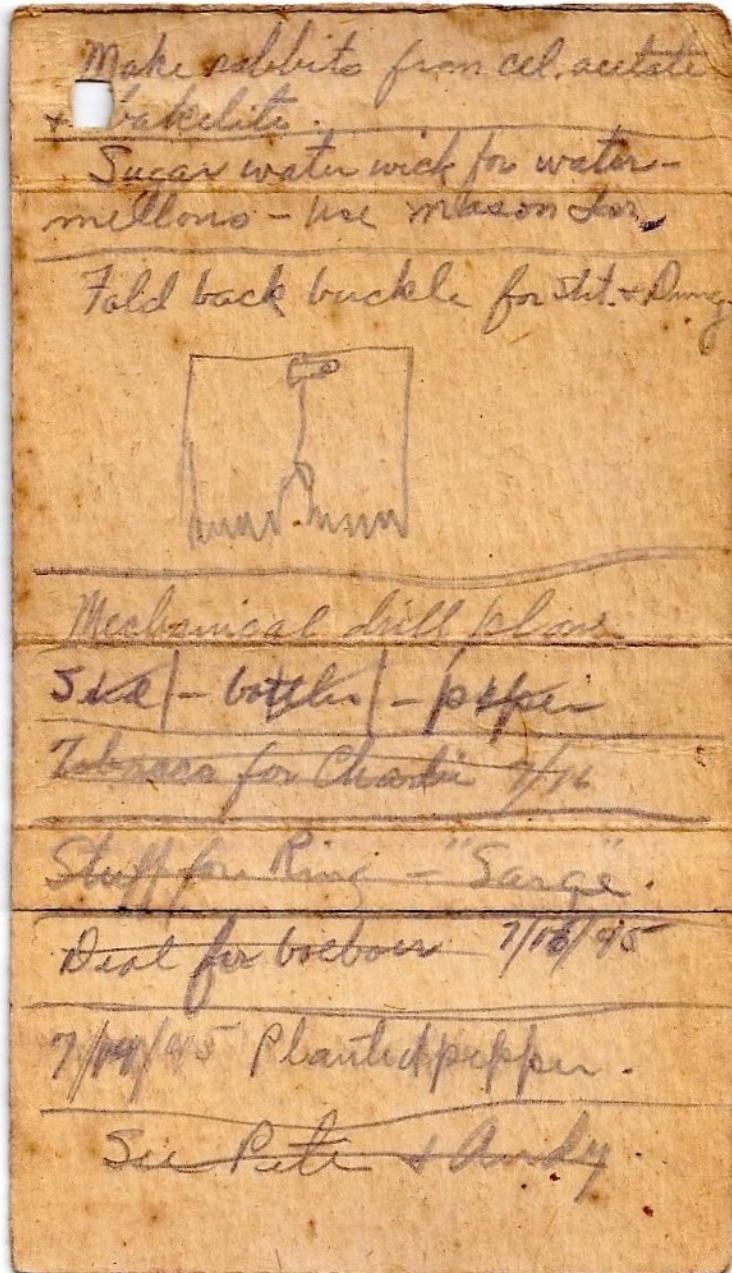 Make rabbits from cel. acetate
+ bakelite.
Sugar water wick for water-
mellons - Use mason Jar
Fold back buckle for Sht. + Dung.
Mechanical drill plow
Sice - bottles - pepper
Tobacco for Charlie 7/16
Stuff for Ring - "Sarge".
Deal for 7/16/45
7/19/45 Planted pepper.
See Pete + Andy.